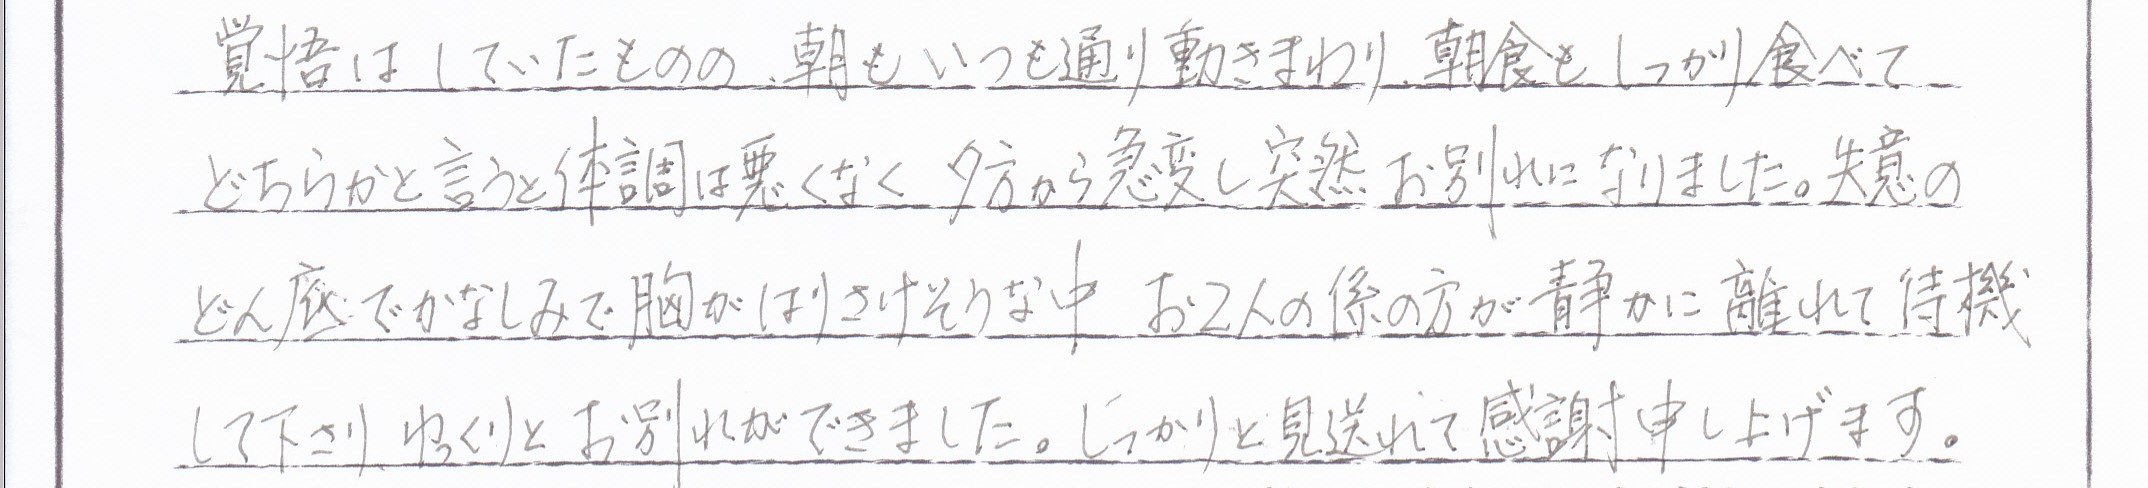 覚悟はしていたものの、朝もいつも通り動きまわり、朝食もしっかり食べて
どちらかと言うと体調は悪くなく 夕方から急変し突然お別れになりました。失意の
どん底でかなしみで胸がはりさけそうな中 お2人の係の方が静かに離れて待機
して下さり、ゆっくりとお別れができました。しっかりと見送れて感謝申し上げます。